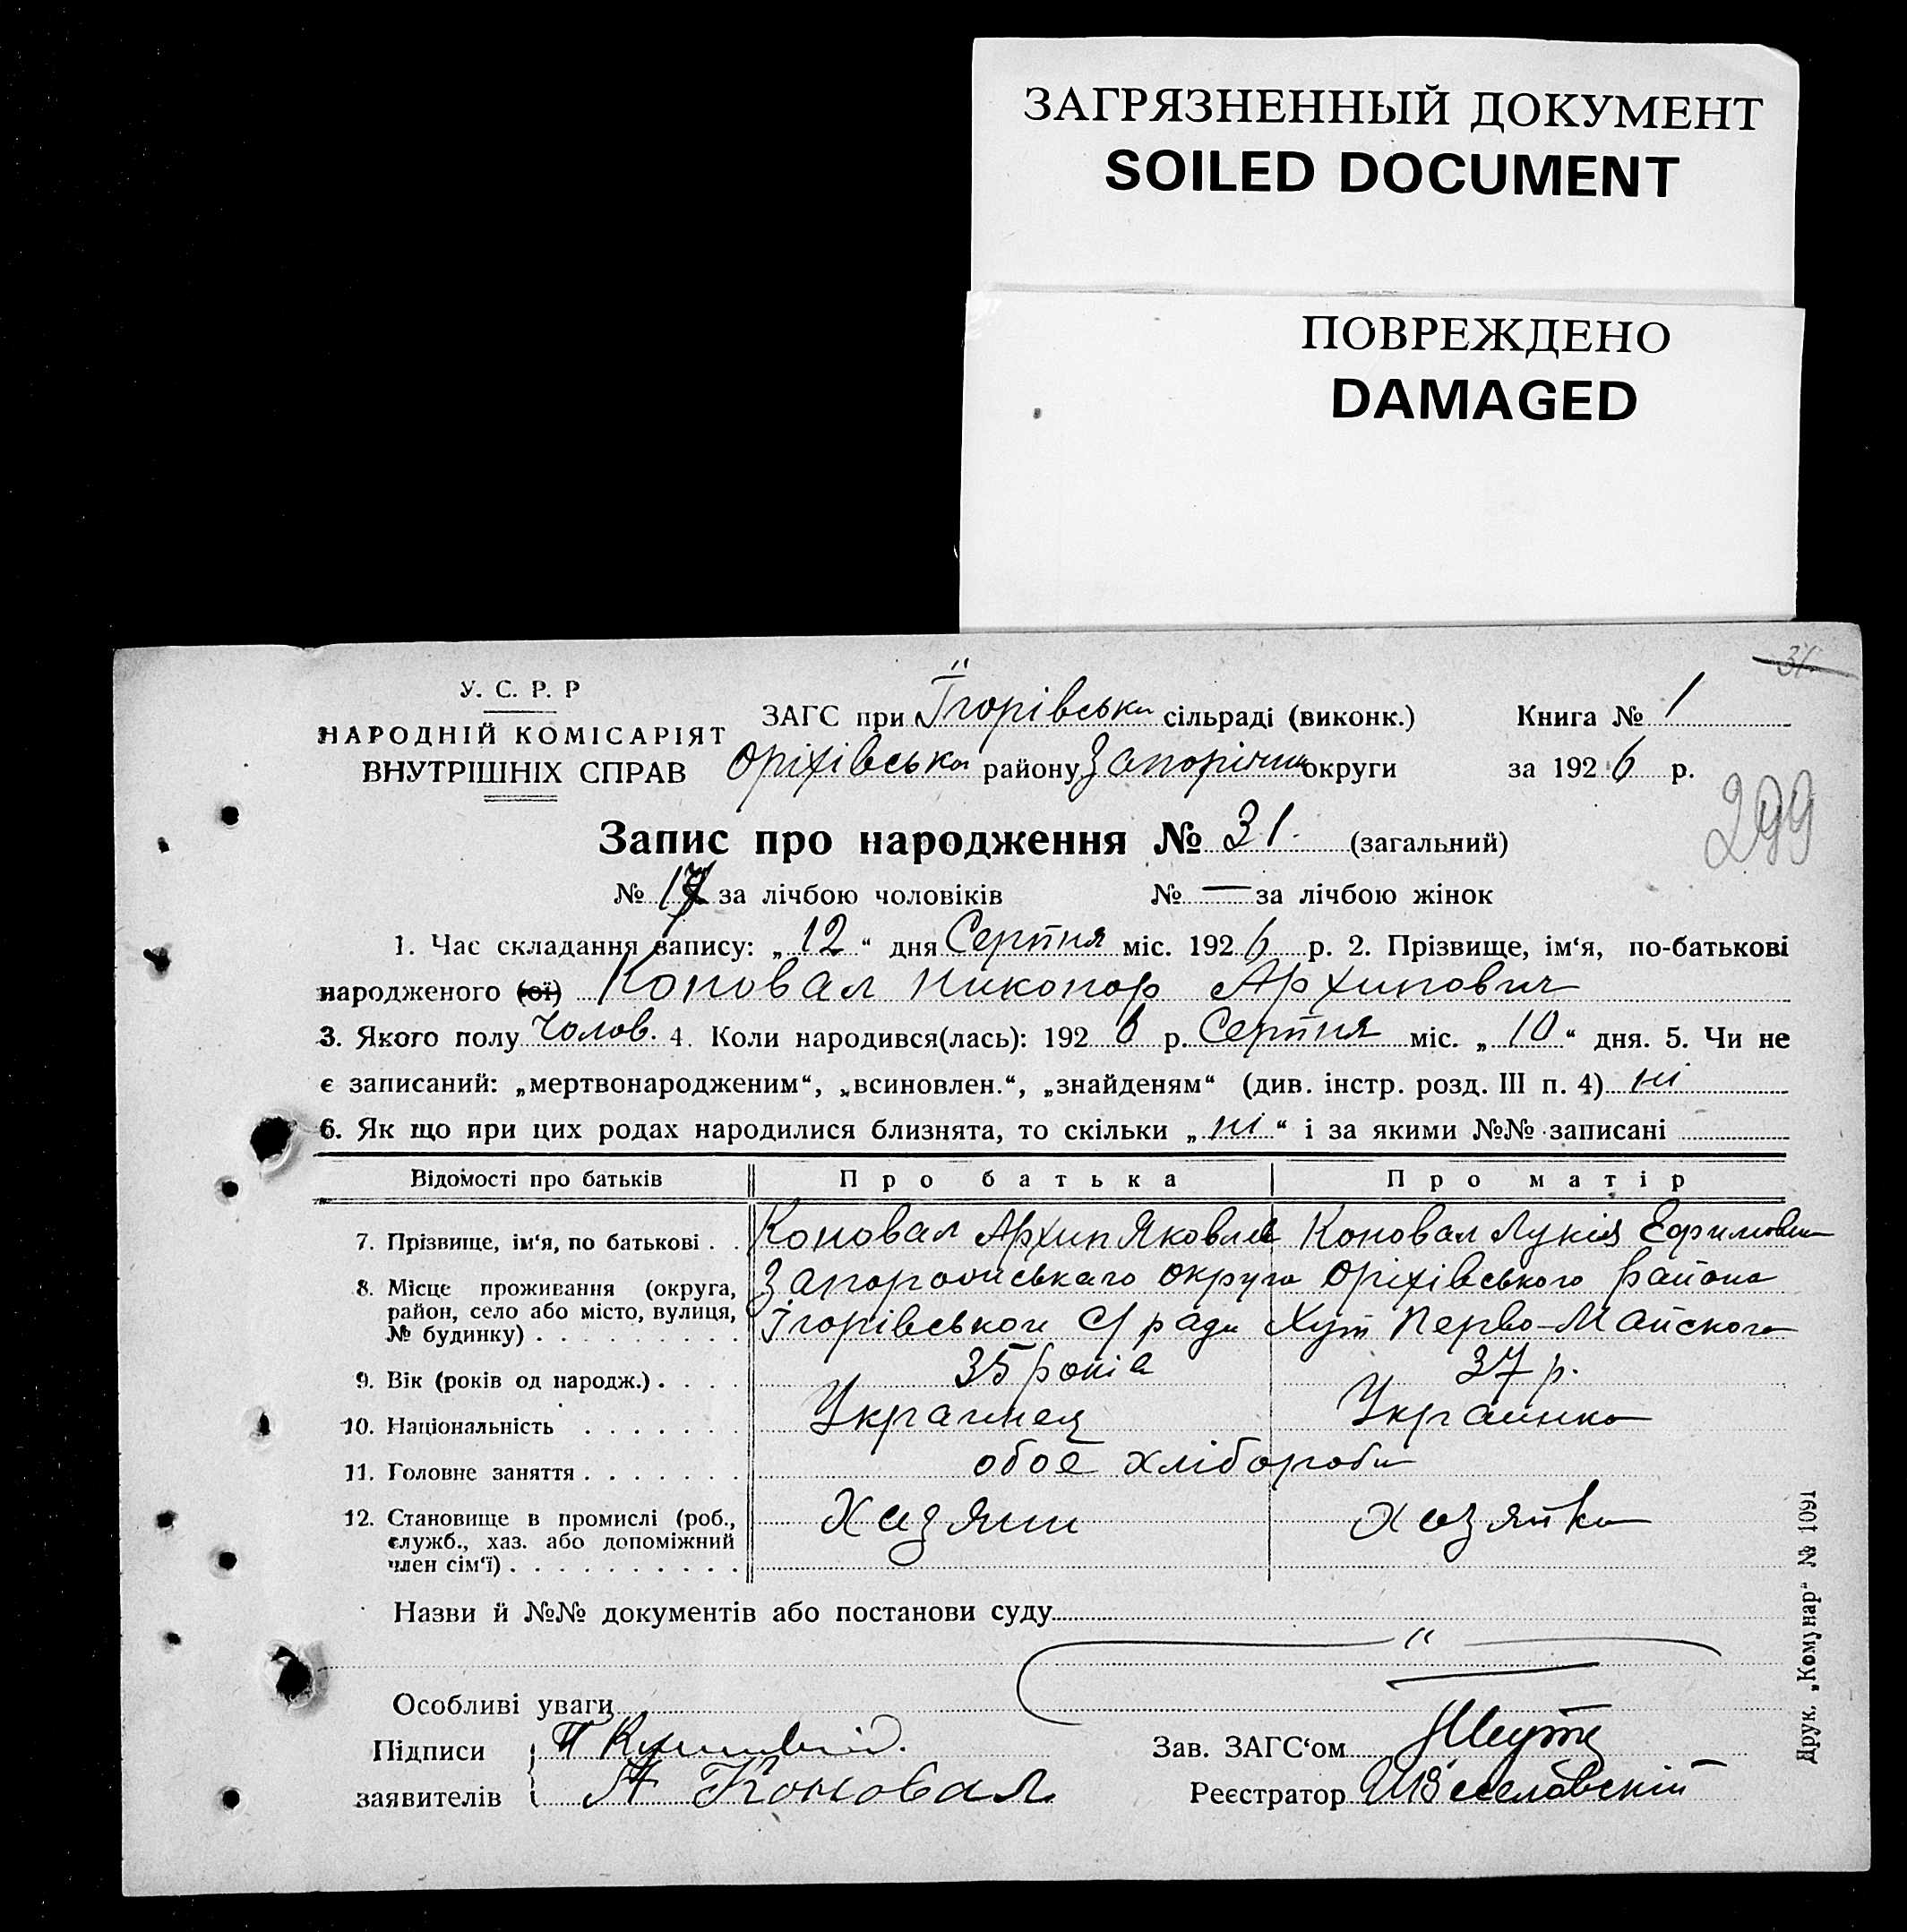 ЗАГРЯЗНЕННЫЙ ДОКУМЕНТ
SOILED DOCUMENT
ПОВРЕЖДЕНО
DAMAGED
31
У. С. Р. Р
НАРОДНІЙ КОМІСАРІЯТ
ВНУТРІШНІХ СПРАВ
ЗАГС при Ігорівська сільраді (виконк.) Книга № 1
Оріхівська району Запоріжна округи за 1926 р.
299
Запис про народження № 31. (загальний)
№ 17 за лічбою чоловіків № — за лічбою жінок
1. Час складання запису: „12“ дня Серпня міс. 1926 р. 2. Прізвище, ім‘я, по-батькові
народженого (ої) Коновал Никонор Архипович
3. Якого полу Чолов. 4. Коли народився(лась): 1926 р. Серпня міс. „10“ дня. 5. Чи не
є записаний: „мертвонародженим“, „всиновлен.“, „знайденям“ (див. інстр. розд. III п. 4) ні
6. Як що при цих родах народилися близнята, то скільки „ні“ і за якими №№ записані
Відомості про батьків Про батька Про матір
7. Прізвище, ім‘я, по батькові . . Коновал Архип Яковлев Коновал Лукія Ефимовн
8. Місце проживання (округа, район, село або місто, вулиця, № будинку) . . . . . . . . .
Запорожиськаго округа Оріхівського района
Ігорівськои С/ради Хут Перво-Майского
9. Вік (років од народж.) . . . . 35 років 37 р.
10. Національність . . . . . . . Украинец Украинка
11. Головне заняття . . . . . . . обоє хлібороби
12. Становище в промислі (роб., служб., хаз. або допоміжний член сім‘ї) . . . . . . . . . .
Хазяин хазяйка
Назви й №№ документів або постанови суду
"
Особливі уваги
Підписи
заявителів
А Коновал
Зав. ЗАГС‘ом
Реєстратор Веселовскій
Друк. „Комунар“ № 1091